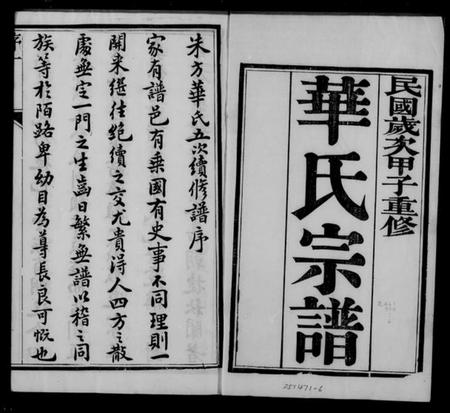 民國歲次甲子重修
華氏宗譜
朱方華氏五次續修譜序
家有譜邑有乘國有史事不同理則一
開来繼往絶續之交尤貴得人四方之散
處無定一門之生齒日繁無譜以稽之同
族等於陌路卑幼目為尊長良可慨也
序一
251471-6